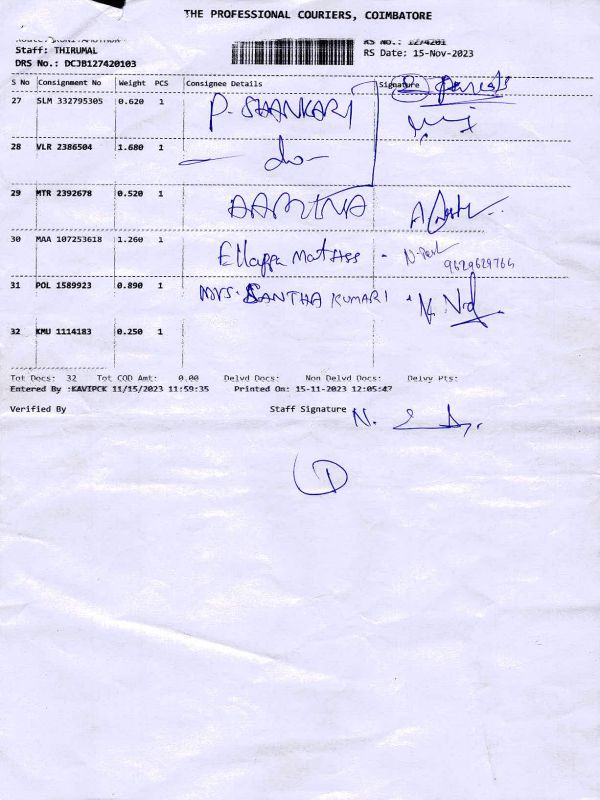 THE PROFESSIONAL COURIERS, COIMBATORE
RS No.: 1274201
Staff: THIRUMAL
RS Date: 15-Nov-2023
DRS No.: DCJB127420103
S No Consignment No Weight PCS Consignee Details Signature
27 SLM 332795305 0.620 1 P. SHANKARI
28 VLR 2386504 1.680 1 - do -
29 MTR 2392678 0.520 1 AAMINA
30 MAA 107253618 1.260 1 Ellappa
9629629766
31 POL 1589923 0.890 1 MRS. SANTHA KUMARI
32 KMU 1114183 0.250 1
Tot Docs: 32 Tot COD Amt: 0.00 Delvd Docs: Non Delvd Docs: Delvy Pts:
Entered By :KAVIPCK 11/15/2023 11:59:35 Printed On: 15-11-2023 12:05:47
Verified By Staff Signature N.